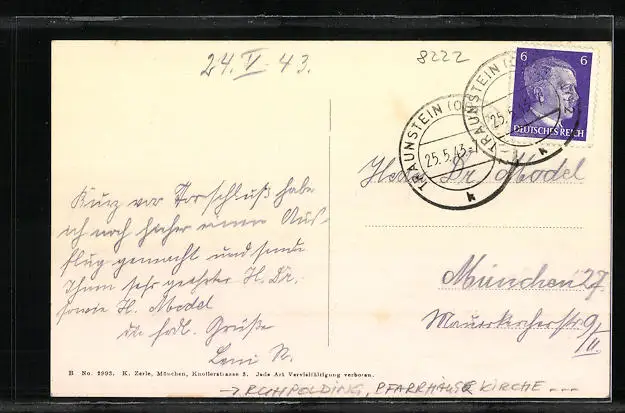 24. V. 43.
8222
6 6
DEUTSCHES REICH
TRAUNSTEIN (O
25.5.43
TRAUNSTEIN (O
25.5.43
Herrn Dr Model
München 27.
Mauerkircherstr. 9/II.
Kurz vor Torschluß habe
ich noch hieher einen Aus-
flug gemacht und sende
Ihnen sehr geehrter H. Dr.
sowie H. Model
die frdl. Grüße
Leni N.
B No. 2993. K. Zerle, München, Knollerstrasse 3. Jede Art Vervielfältigung verboten.
→ RUHPOLDING, PFARRHAUS & KIRCHE ...